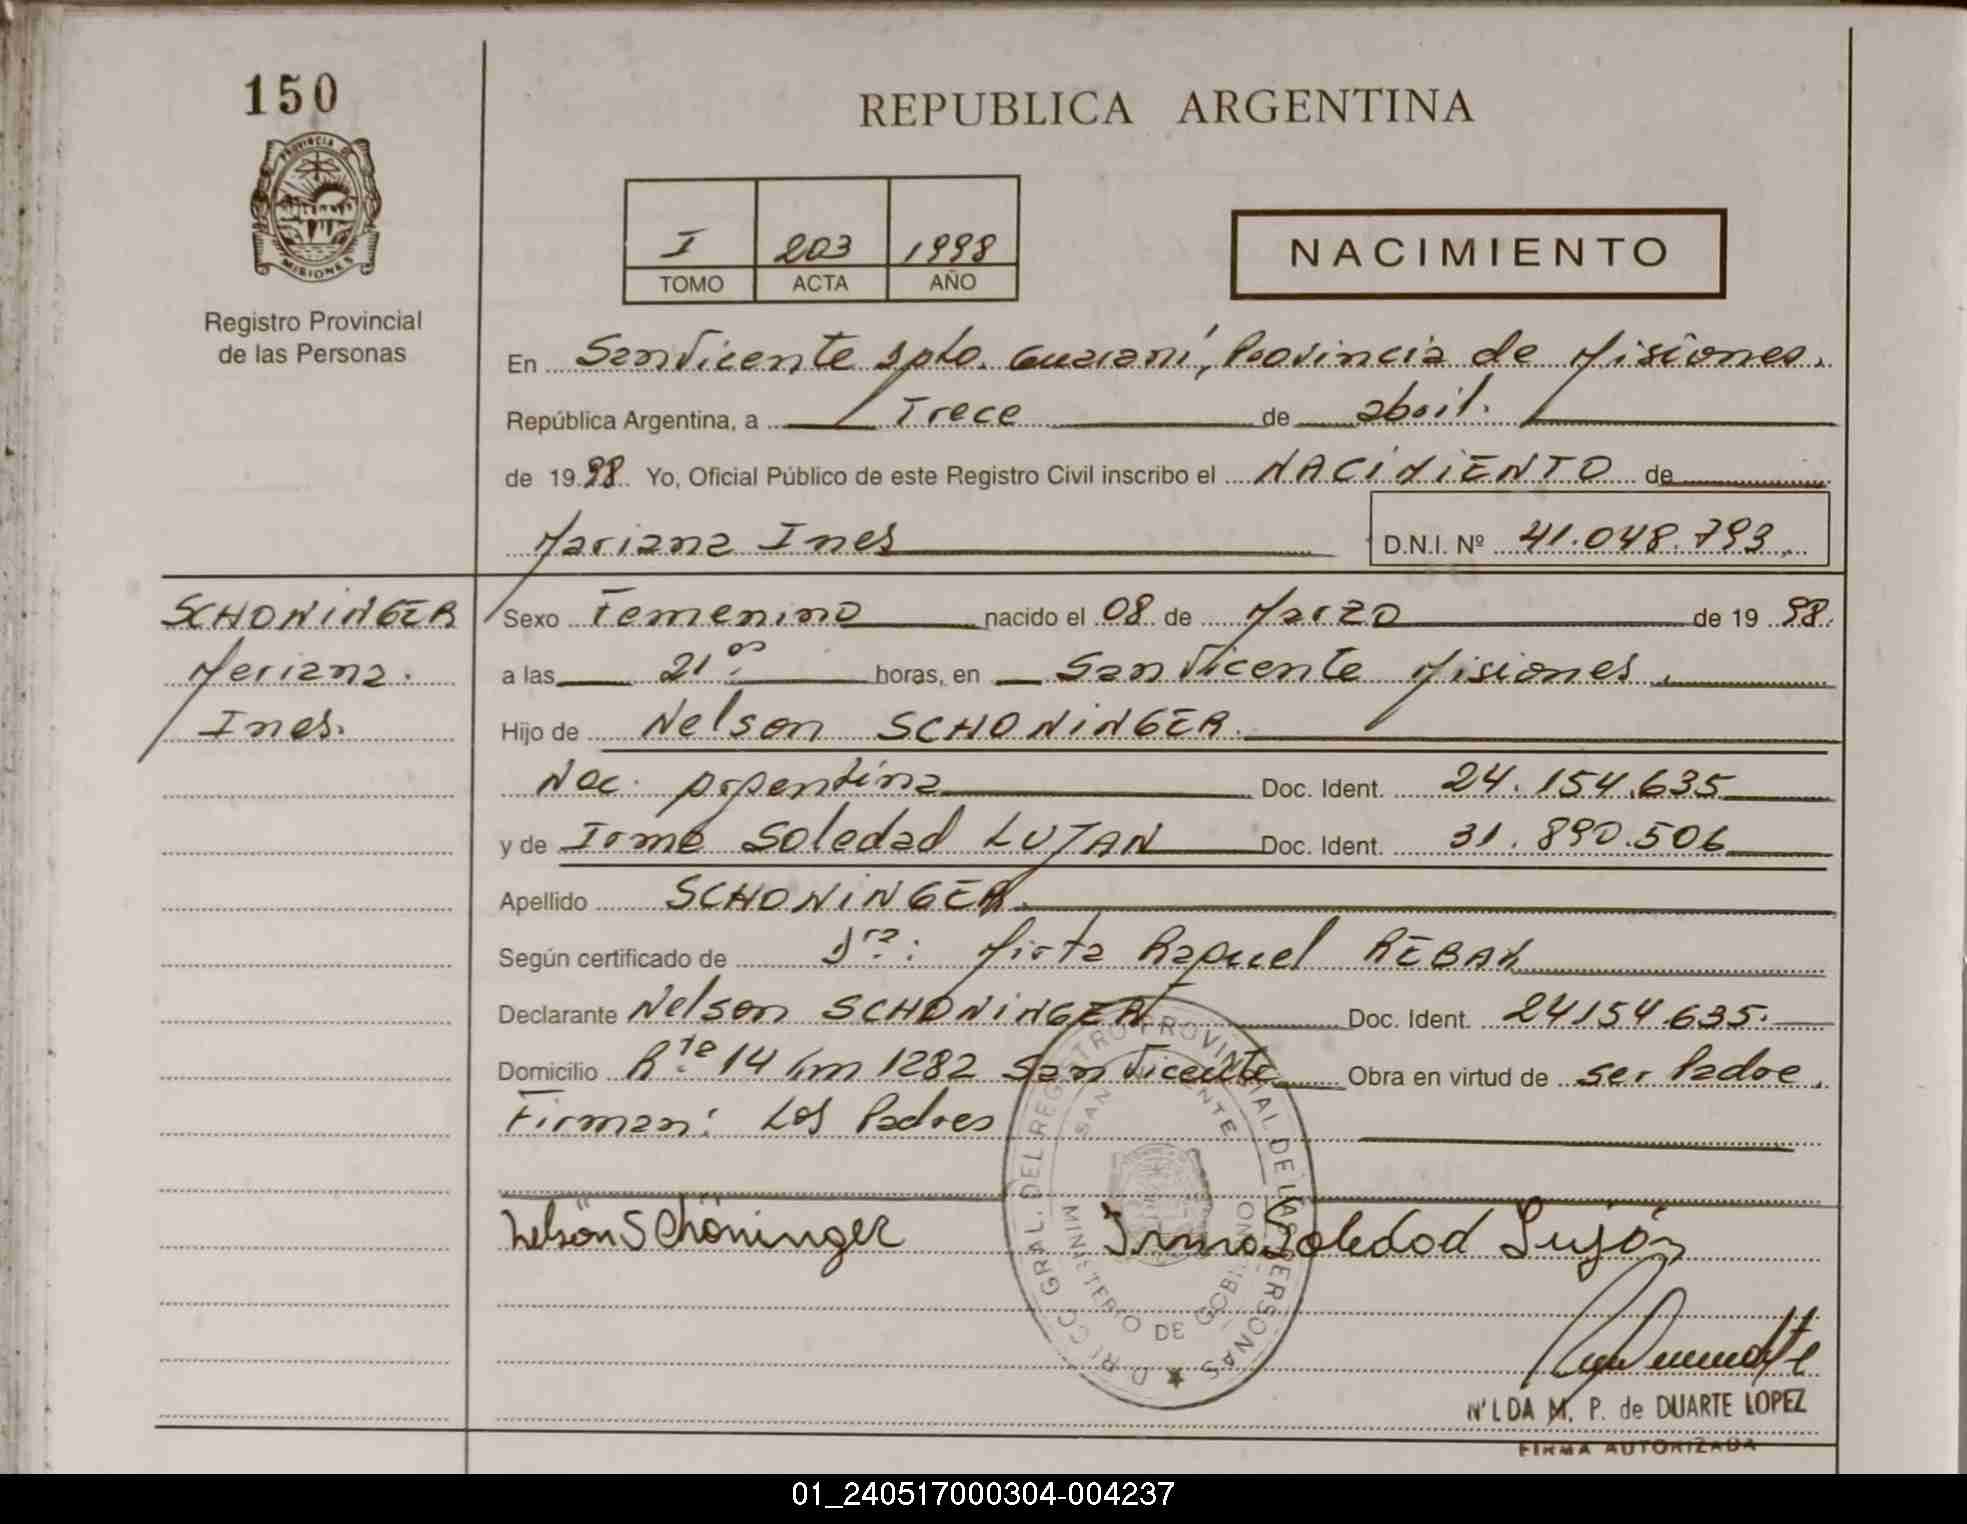 150
PROVINCIA DE
MISIONES
Registro Provincial
de las Personas
REPUBLICA ARGENTINA
I 203 1998
TOMO ACTA AÑO
NACIMIENTO
En San Vicente Dpto. Guarani, Provincia de Misiones.
República Argentina, a Trece de abril.
de 1998 Yo, Oficial Público de este Registro Civil inscribo el NACIMIENTO de
Mariana Ines D.N.I. Nº 41.048.793
SCHONINGER
Mariana.
Ines.
Sexo Femenino nacido el 08 de Marzo de 1998.
a las 21 horas, en San Vicente Misiones.
Hijo de Nelson SCHONINGER.
Nac. Argentina Doc. Ident. 24.154.635
y de Irma Soledad LUJAN Doc. Ident. 31.890.506
Apellido SCHONINGER.
Según certificado de Dra: Mirta Raquel REBAK
Declarante Nelson SCHONINGER Doc. Ident. 24154.635.
Domicilio Rta 14 Km 1282 San Vicente Obra en virtud de ser Padre.
Firman: Los Padres
Nelson Schöninger Irma Soledad Luján
DIRECC. GRAL. DEL REGISTRO PROVINCIAL DE LAS PERSONAS
SAN VICENTE
MINISTERIO DE GOBIERNO
NILDA M. P. de DUARTE LOPEZ
FIRMA AUTORIZADA
01_240517000304-004237